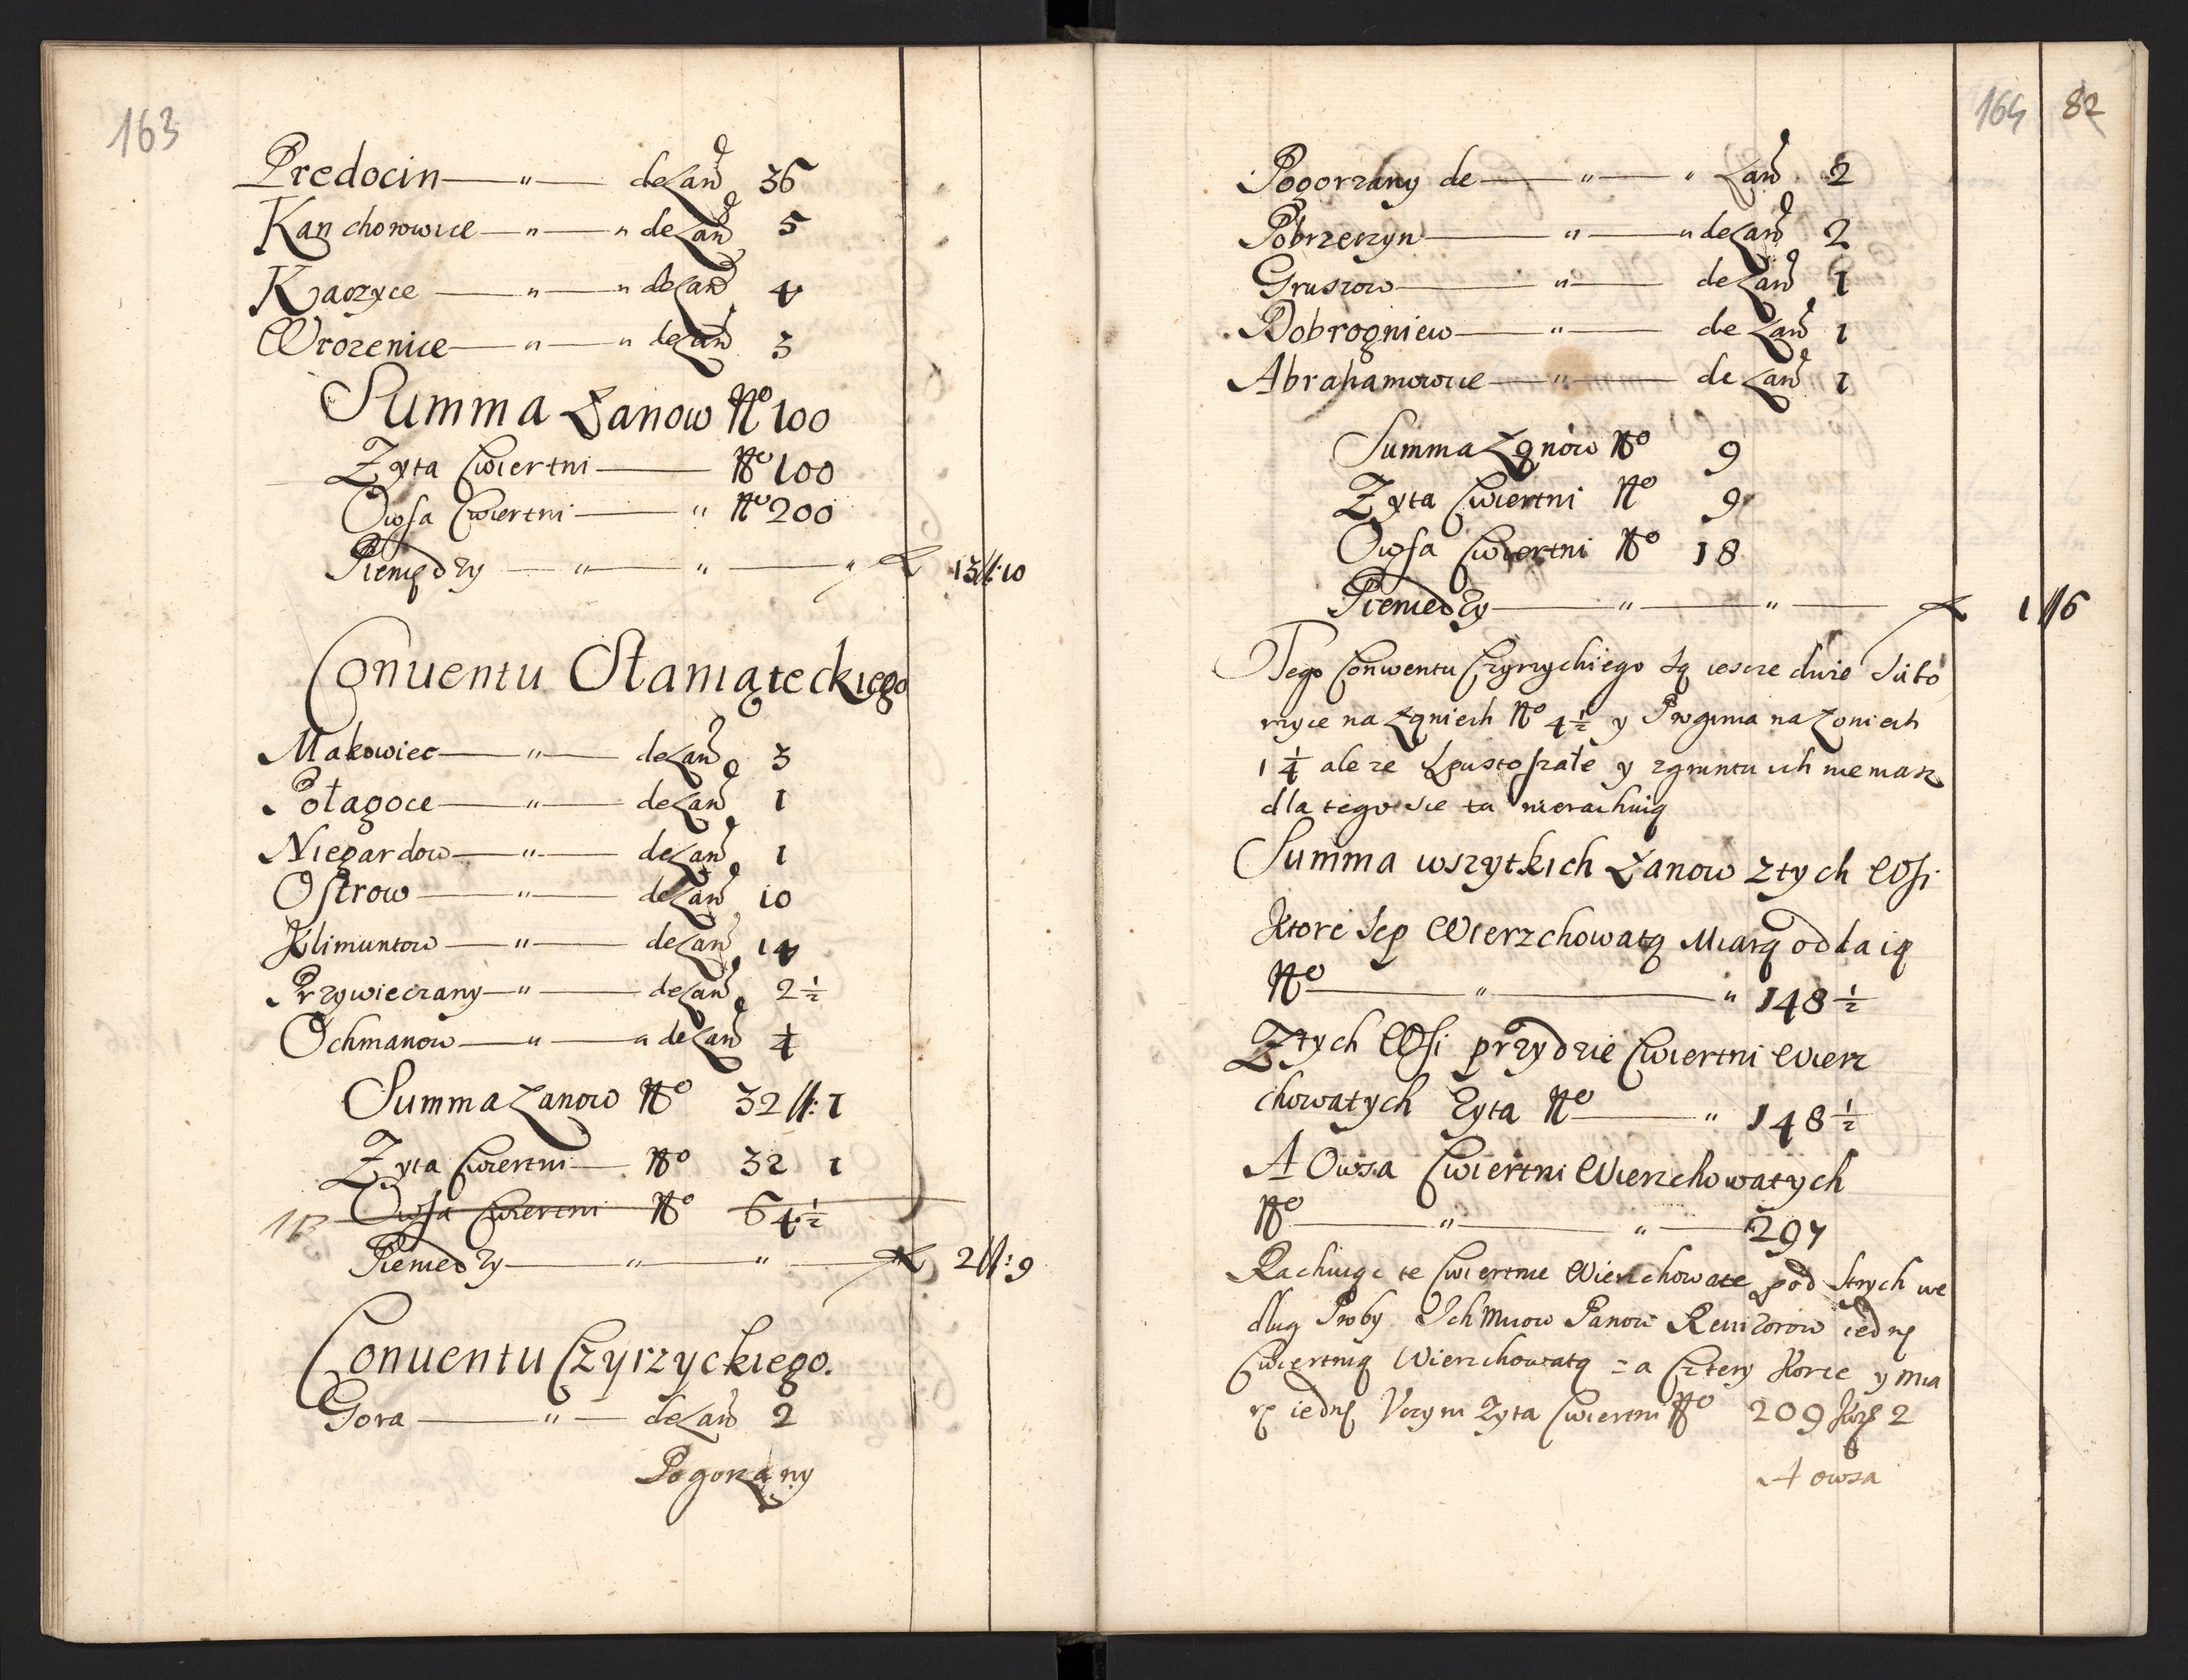 163
Predocin — " — de Łanõ 36
Kanchorowice — " — " de Łanõ 5
Kaczyce — " — " de Łanõ 4
Wrozenice — " — " de Łanõ 3
Summa Łanow No 100
Zyta Cwiertni — No 100
Owsa Cwiertni — " No 200
Pieniędzy — " — " — " 13//:10
Conuentu Staniąteckiego
Makowiec — " — de Łanõ 3
Połagoce — " — de Łanõ 1
Niegardow — " — de Łanõ 1
Ostrow — " — de Łanõ 10
Klimuntow — " — de Łanõ 14
Przywieczany — " — de Łanõ 2 1/2
Ochmanow — " — " de Łanõ 1/4
Summa Łanow No 32 //: 1
Zyta Cwiertni — No 32 1
Owsa Cwiertni No 64 1/2
Pieniedzy — " — " — 2//:9
Conuentu Czyrzyckiego.
Gora — " — de Łanõ 2
Pogorzany
164 82
Pogorzany de — " — " Łanõ 2
Pobrzeczyn — " — " de Łanõ 2
Gruszow — " — de Łanõ 1
Dobrogniew — " — de Łanõ 1
Abrahamowice — " — de Łanõ 1
Summa Łanów No 9
Zyta Cwiertni No 9
Owsa Cwiertni No 18
Pieniedzy — " — " — 1//6
Tego Conwentu Czyrzyckiego są iescze dwie
na Łaniech No 4 1/2 y na Łoniech
1 1/4 ale ze spustoszałe y zgruntu ich niemasz
dla tego sie tu nierachuią
Summa wszytkich Łanow z tych Wsi
Ktore Sep Wierzchowatą Miarą oddaią
No — " — " 148 1/2
Z tych Wsi przydzie Cwiertni Wierz
chowatych Zyta No — " 148 1/2
A Owsa Cwiertni Wierzchowatych
No — " — " — 297
Rachuiąc te Cwiertnie Wierzchowate pod Strych we
dług Proby Ich Mciow Panow Rewizorow iednę
Cwiertnią Wierzchowatą za Cztery Korce y mia
rę iednę Vczyni Zyta Cwiertni No 209 2
A owsa